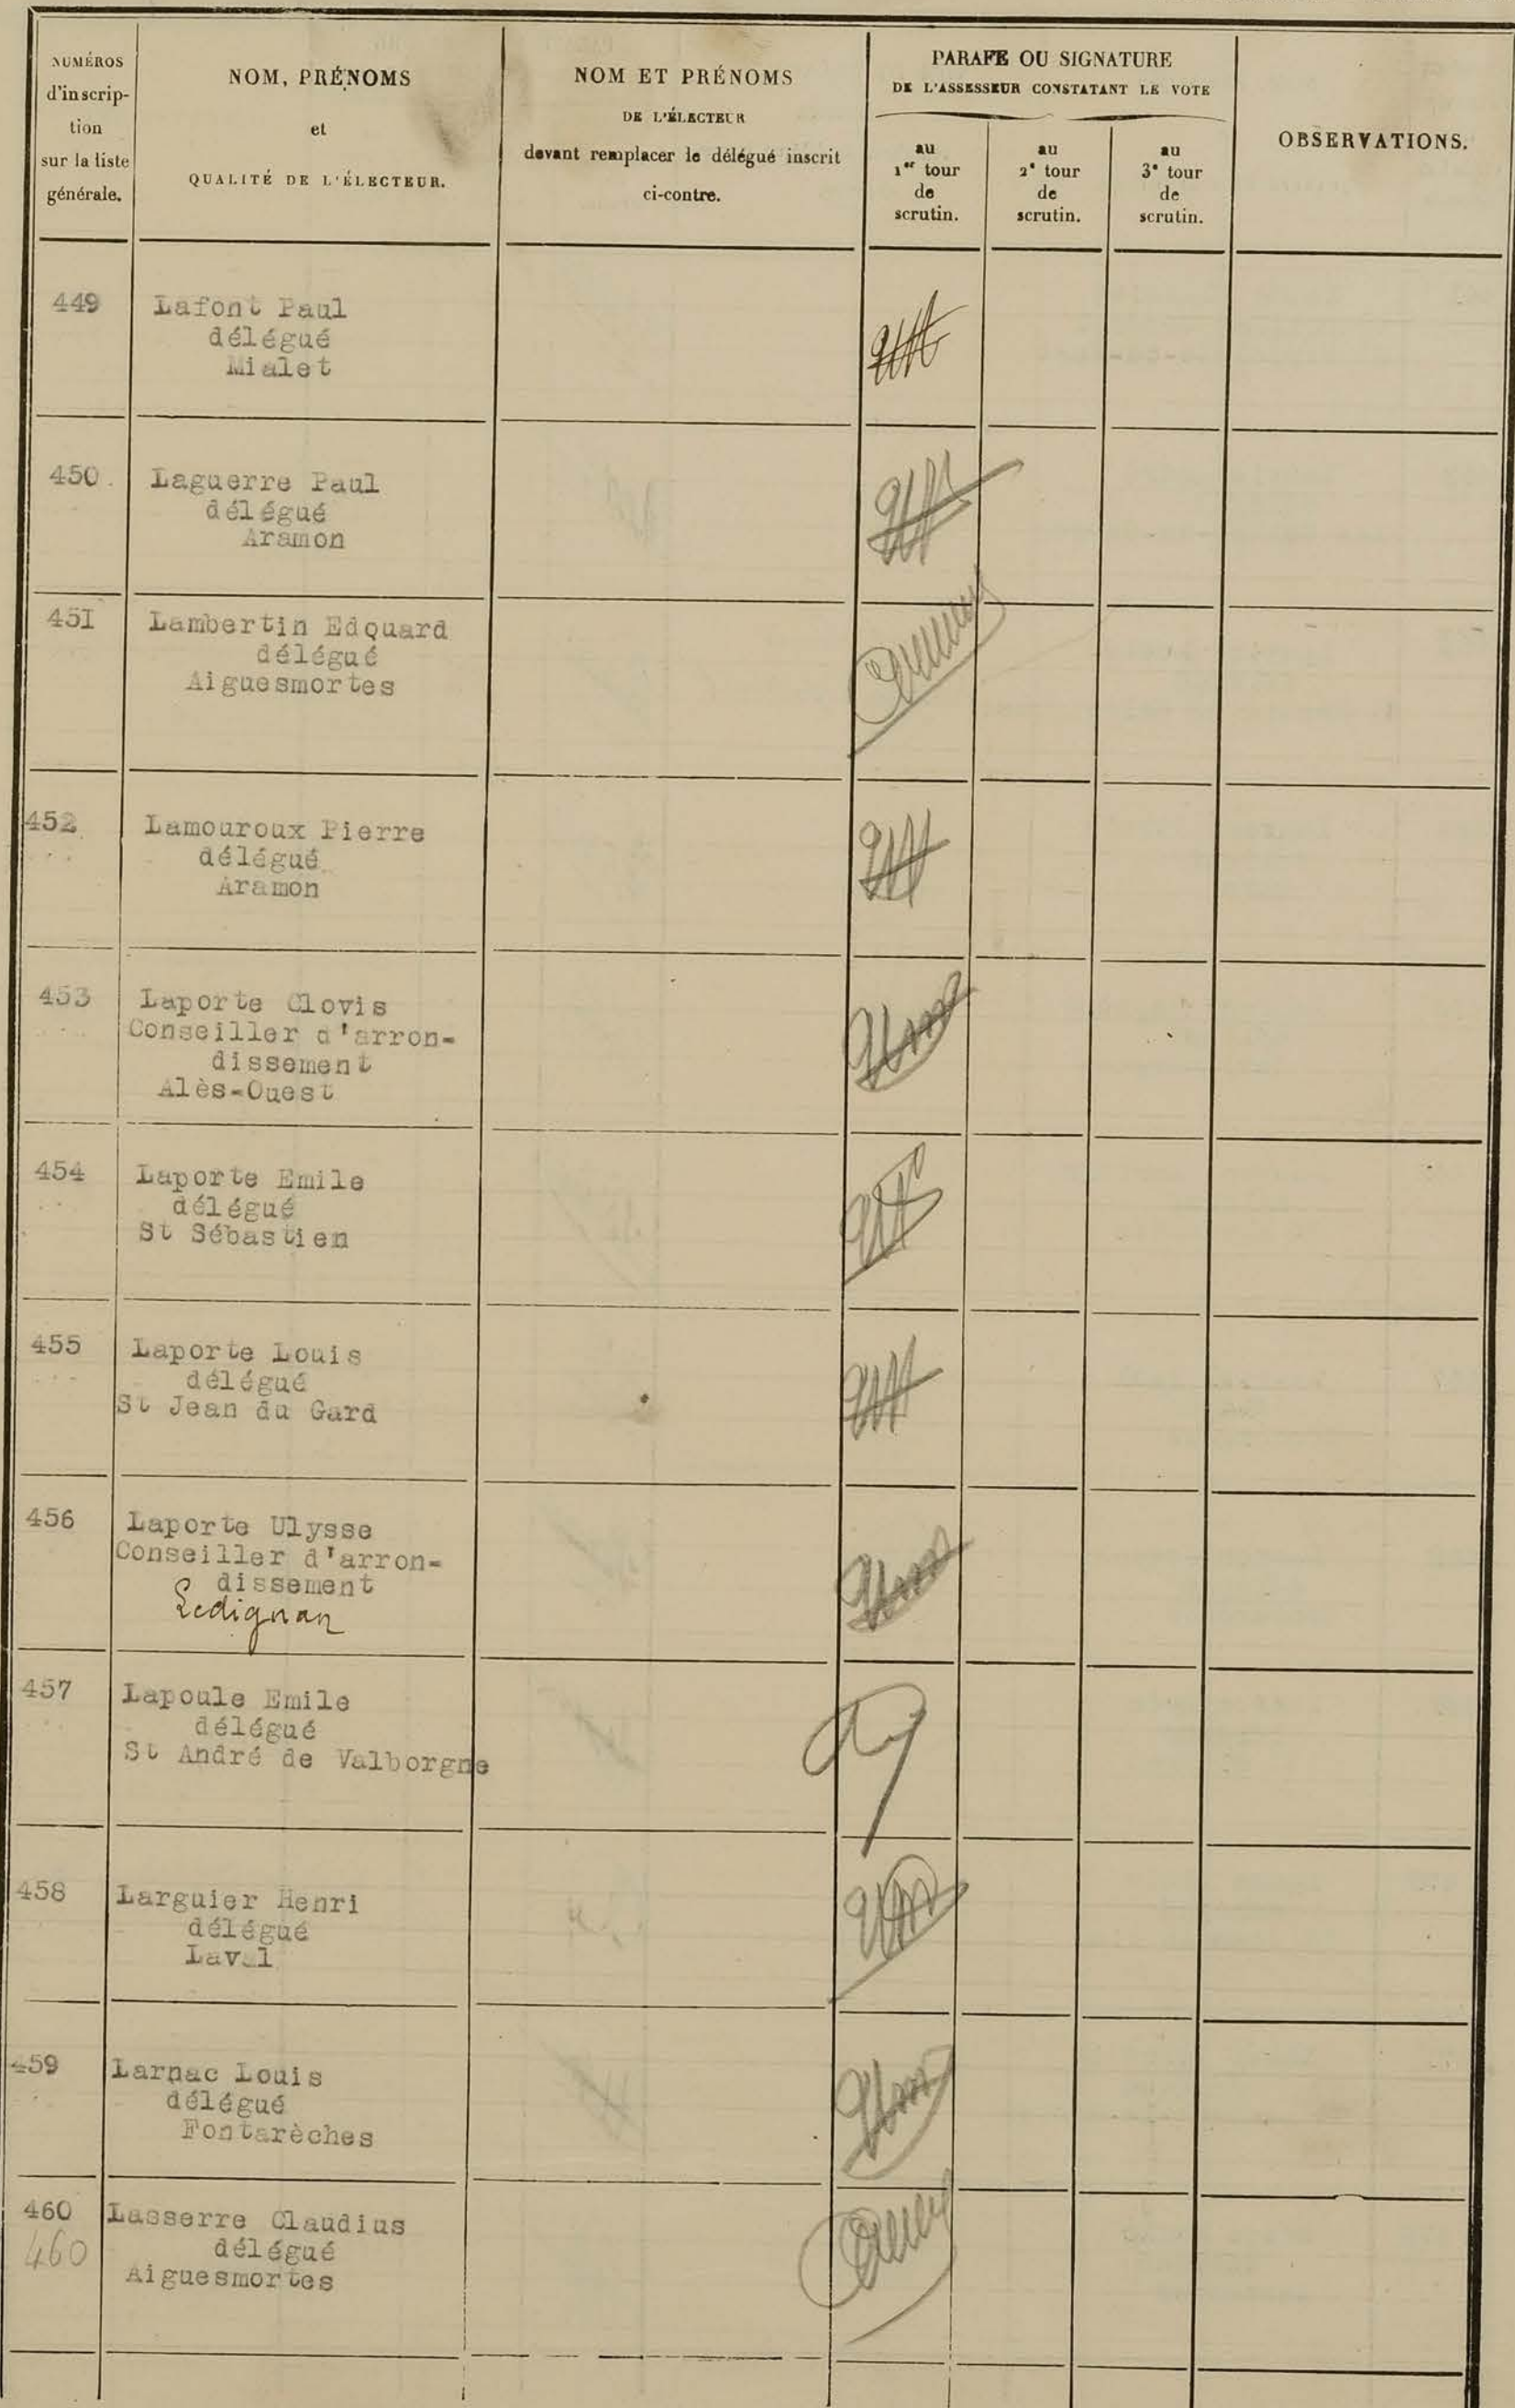 NUMÉROS
d'inscrip-
tion
sur la liste
générale.
NOM, PRÉNOMS
et
QUALITÉ DE L'ÉLECTEUR.
NOM ET PRÉNOMS
DE L'ÉLECTEUR
devant remplacer le délégué inscrit
ci-contre.
PARAFE OU SIGNATURE
DE L'ASSESSEUR CONSTATANT LE VOTE
au
1er tour
de
scrutin.
au
2e tour
de
scrutin.
au
3e tour
de
scrutin.
OBSERVATIONS.
449 Lafont Paul
délégué
Mialet
450 Laguerre Paul
délégué
Aramon
451 Lambertin Edouard
délégué
Aiguesmortes
452 Lamouroux Pierre
délégué
Aramon
453 Laporte Clovis
Conseiller d'arron-
dissement
Alès-Ouest
454 Laporte Emile
délégué
St Sébastien
455 Laporte Louis
délégué
St Jean du Gard
456 Laporte Ulysse
Conseiller d'arron-
dissement
Ledignan
457 Lapoule Emile
délégué
St André de Valborgne
458 Larguier Henri
délégué
Laval
459 Larnac Louis
délégué
Fontarèches
460 Lasserre Claudius
460 délégué
Aiguesmortes